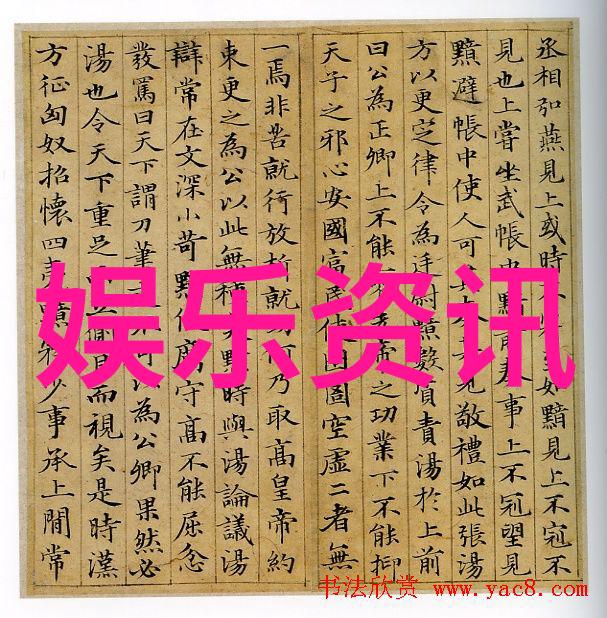 丞相弘燕見上或時不冠至如黯見上不冠不
見也上嘗坐武帳中黯前奏事上不冠望見
黯避帳中使人可其奏其見敬禮如此張湯
方以更定律令為廷尉黯數質責湯於上前
曰公為正卿上不能帝之功業下不能抑
天子之邪心安國富民使囹圄空虛二者無
一焉非苦就行放析就功何乃取高皇帝約
束更之為公以此無種矣黯時與湯論議湯
辯常在文深小苛黯伉厲守高不能屈忿
發罵曰天下謂刀筆吏不可以為公卿果然必
湯也令天下重足而立側目而視矣是時漢
方征匈奴招懷四夷黯務少事承上間常
娱乐资讯
书法欣赏 www.yac8.com